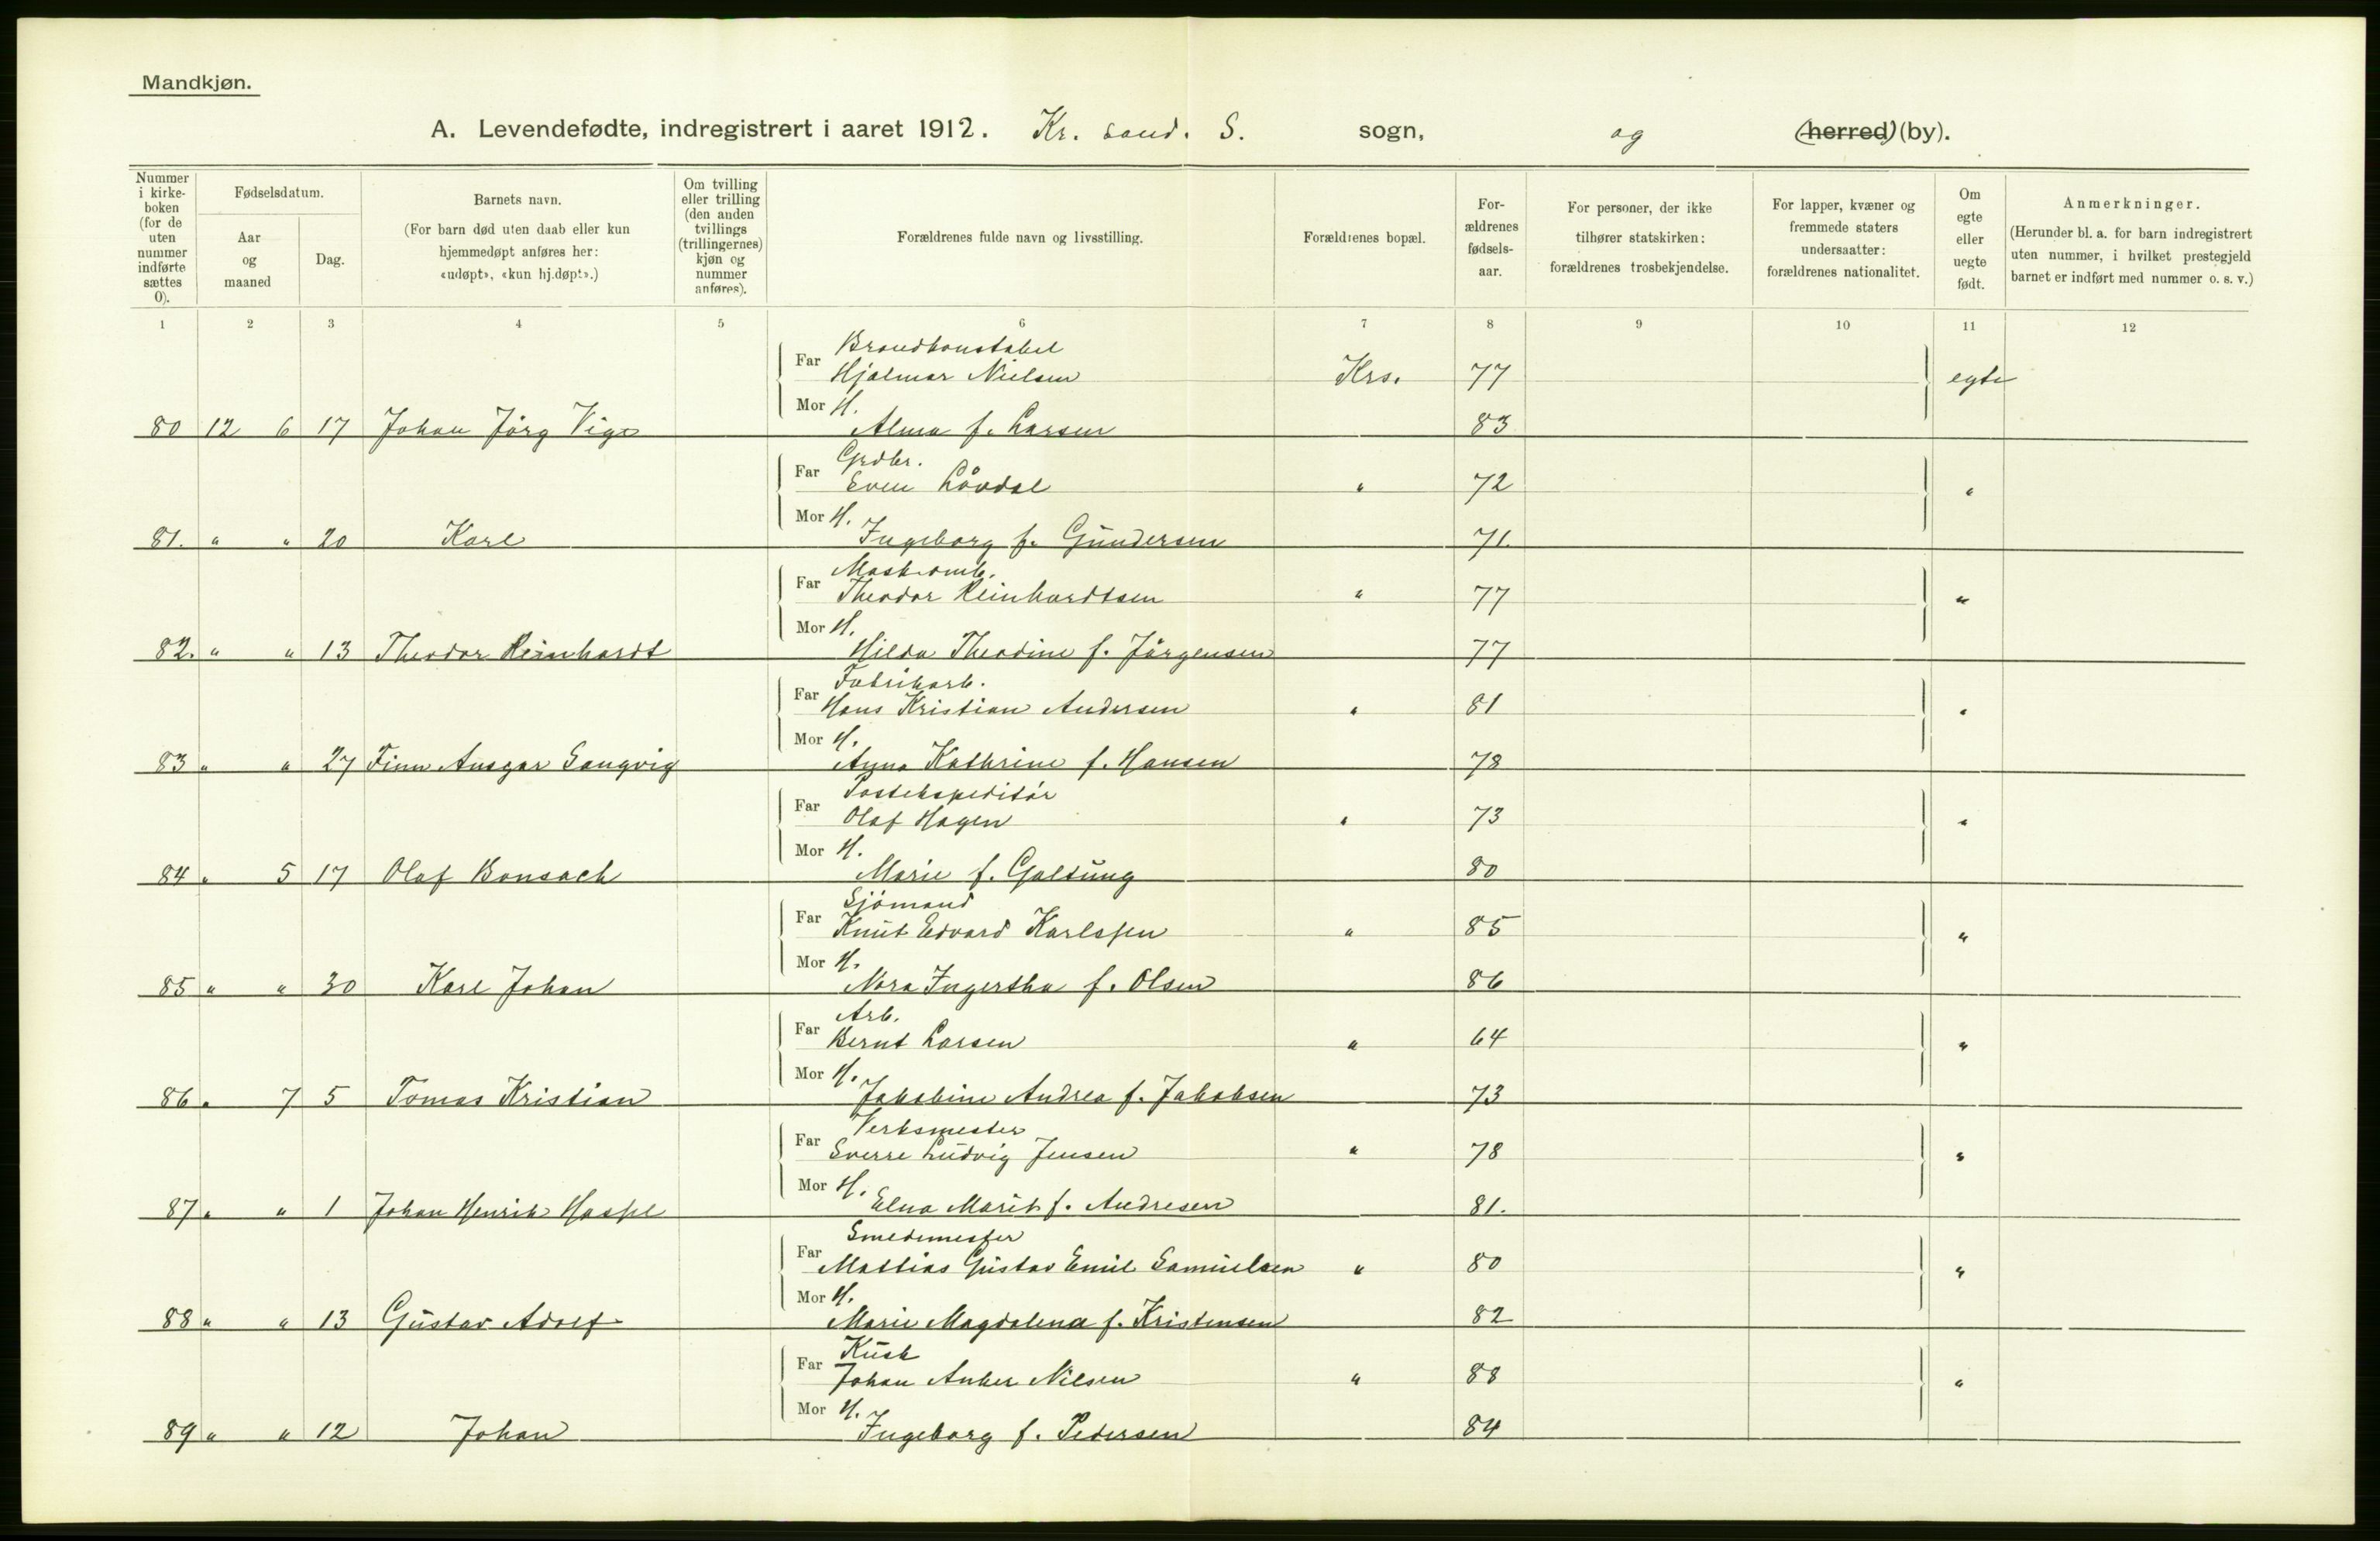 Mandkjøn.
A. Levendefødte, indregistrert i aaret 1912. Kr. sand. S. sogn, og (herred) (by).
Nummer i kirke-boken (for de uten nummer indførte sættes 0).
Fødselsdatum.
Aar og maaned
Dag.
Barnets navn.
(For barn død uten daab eller kun hjemmedøpt anføres her: «udøpt», «kun hj.døpt».)
Om tvilling eller trilling (den anden tvillings (trillingernes) kjøn og nummer anføres).
Forældrenes fulde navn og livsstilling.
Forældrenes bopæl.
For-ældrenes fødsels-aar.
For personer, der ikke tilhører statskirken: forældrenes trosbekjendelse.
For lapper, kvæner og fremmede staters undersaatter: forældrenes nationalitet.
Om egte eller uegte født.
Anmerkninger.
(Herunder bl. a. for barn indregistrert uten nummer, i hvilket prestegjeld barnet er indført med nummer o. s. v.)
1 2 3 4 5 6 7 8 9 10 11 12
Brandkonstabel
Far Hjalmar Nielsen Krs. 77 egte
Mor H.
80 12 6 17 Johan Jörg Vige Alma f. Larsen 83
Grdbr.
Far Even Låvdal " 72 "
Mor H.
81. " " 20 Karl Ingeborg f. Gundersen 71.
Far Theodor Reinhardtsen " 77 "
Mor H.
82. " " 13 Theodor Reinhardt Hilda Theodine f. Jörgensen 77
Fabrikarb.
Far Hans Kristian Andersen " 81 "
Mor H.
83 " " 27 Finn Ansgar Sangvig Anna Kathrine f. Hansen 78
Postekspeditör
Far Olaf Hagen " 73 "
Mor H.
84 " 5 17 Olaf Bonsach Marie f. Galtung 80
Sjömand
Far Knut Edvard Karlssen " 85 "
Mor H.
85 " " 30 Karl Johan Nora Ingertha f. Olsen 86
Arb.
Far Bernt Larsen " 64 "
Mor H.
86 " 7 5 Tomas Kristian Jakobine Andrea f. Jakobsen 73
Verksmester
Far Sverre Ludvig Jensen " 78 "
Mor H.
87 " " 1 Johan Henrik Hassel Elna Marit f. Andresen 81.
Smedmester
Far Mattias Gustav Emil Samuelsen " 80 "
Mor H.
88 " " 13 Gustav Adolf Marie Magdalena f. Kristensen 82
Kusk
Far Johan Anker Nilsen " 88 "
Mor H.
89 " " 12 Johan Ingeborg f. Pedersen 84